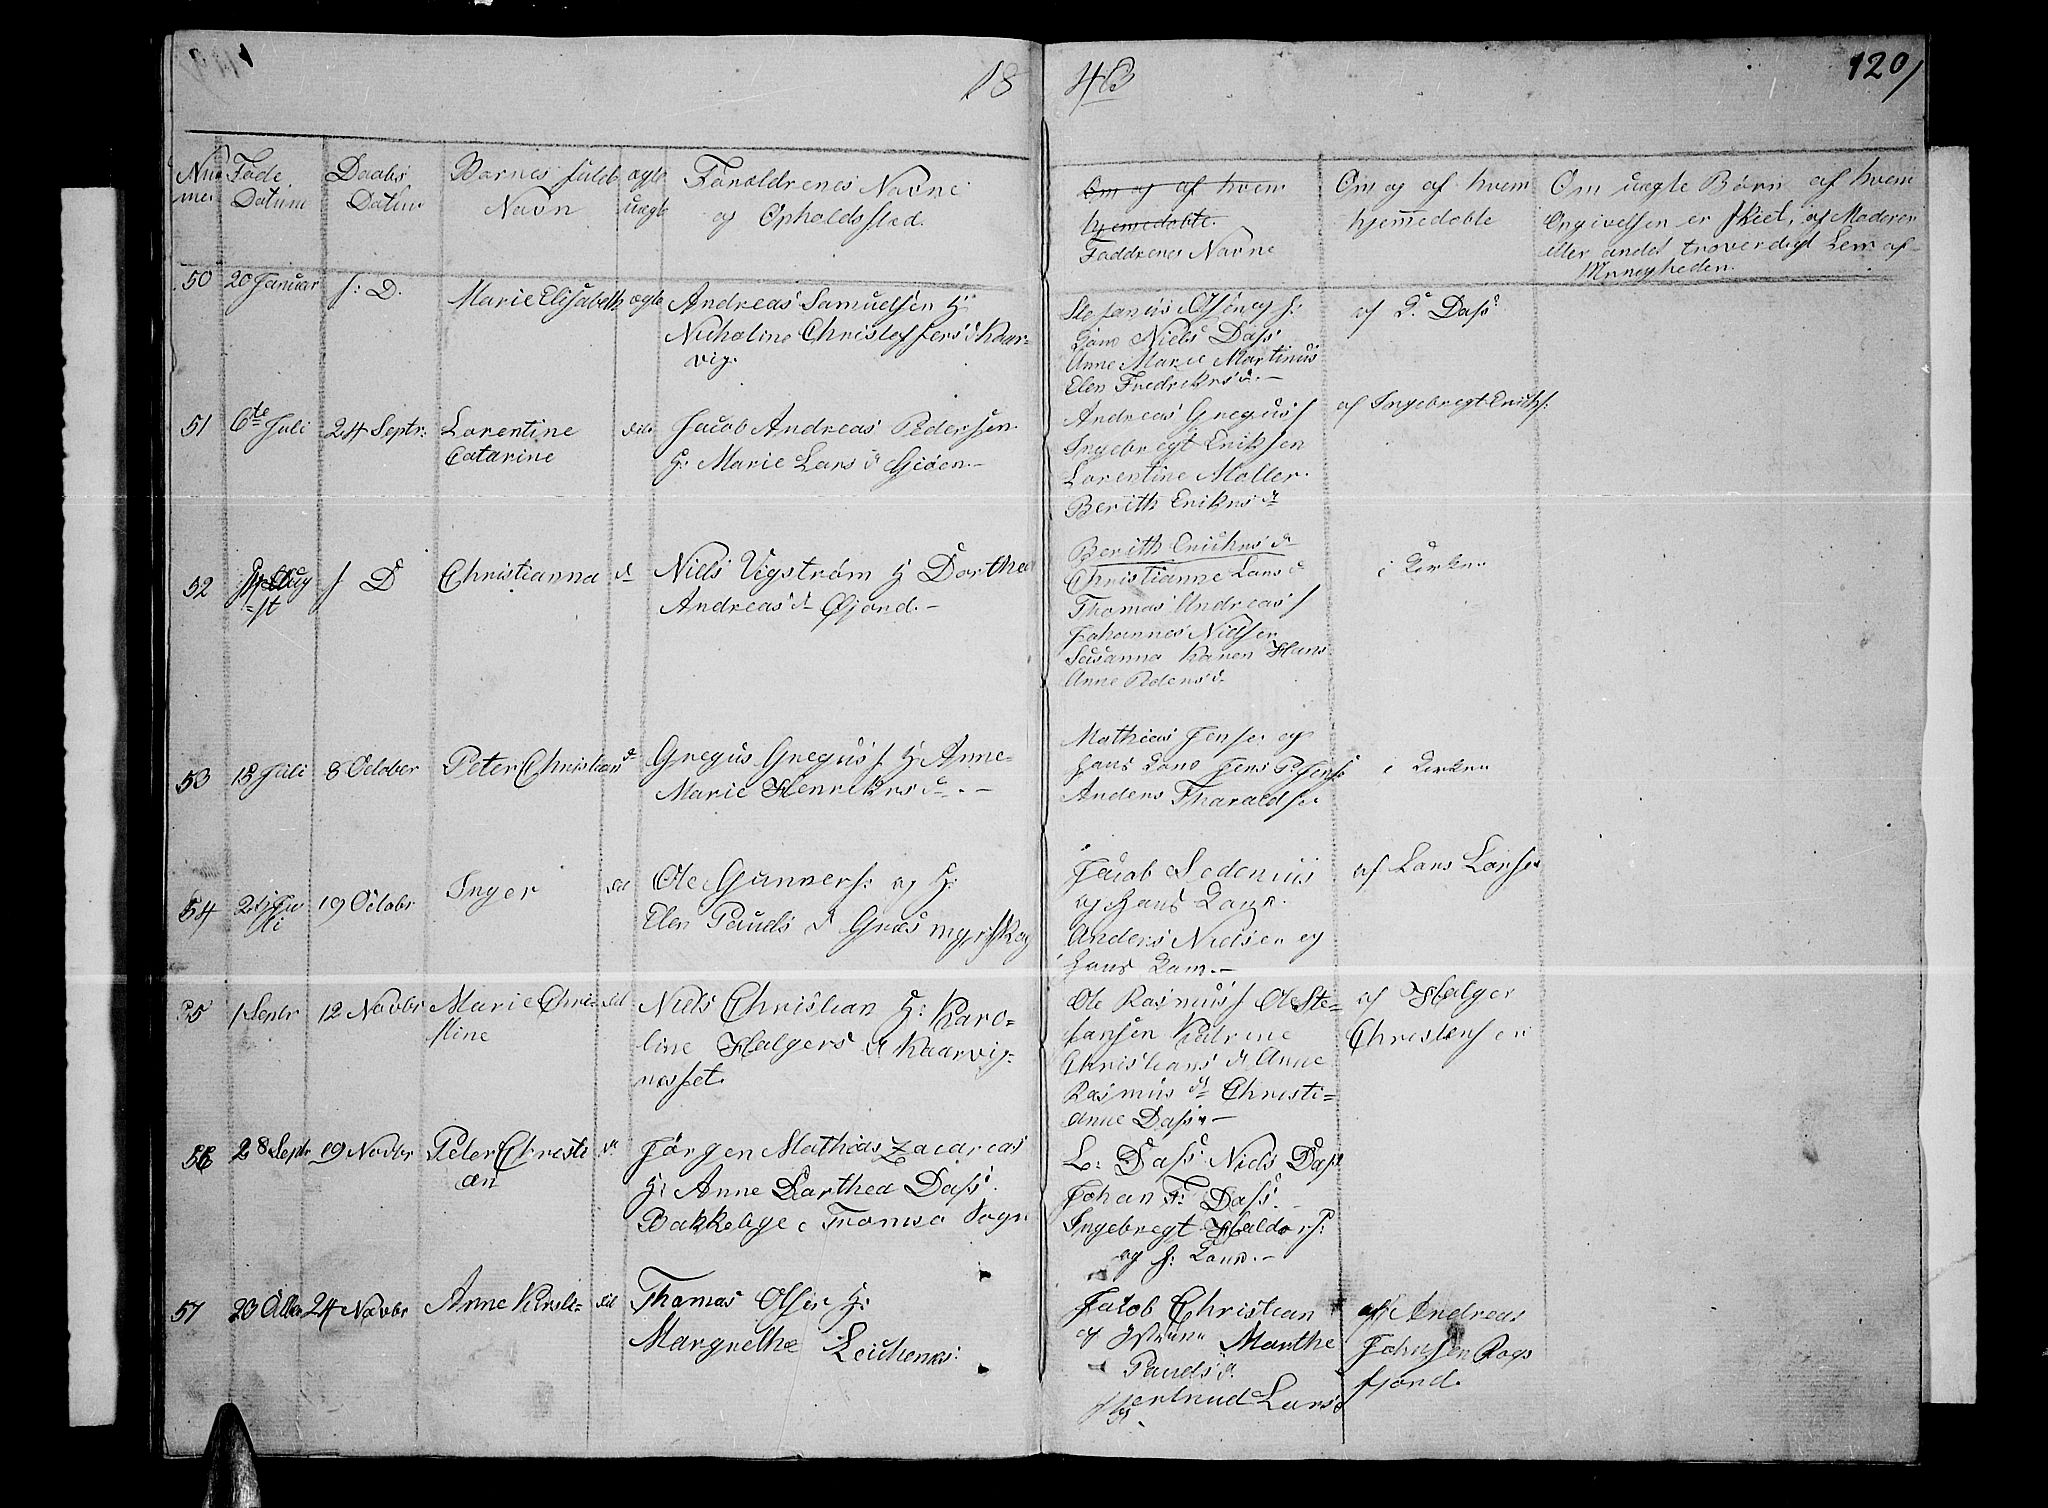 18 43
120
Nummer
Føde Datum
Daabs Datum
Barnets fulde Navn
ægte uægte
Forældrenes Navne og Opholdssted.
Om og af hvem
hjemedøbte.
Faddrenes Navne
Om og af hvem
hjemmedøbte
Om uægte Børn af hvem
Angivelsen er skeet, af Moderen
eller andet troverdigt Lem af
Menigheden.
50 20 Januar s: D. Marie Elisabeth ægte
Andreas Samuelsen H:
Nicholine Christoffers d Kaar-
vig.
Anne Marie Martinus
Elen Fredriks d. –
af P. Dass
51 6te Juli 24 Septr: Lorentine
Catarine
Jacob Andreas Pedersen
H: Marie Lars d Gisøen. –
Andreas Gregus s
Ingebregt Eriksen
Lorentine Møller.
Berith Eriks d
af Ingebregt Eriks:
52 s D Christianna d
Niels Vigstrøm H Dorthea
Andreas d Øjord. –
Berith Eriks d
Christianne Lars d
Thomas Andreas s
Johannes Nielsen
Susanna Karen Hans
Anne Peders d.
i Kirken
53 12 Juli 8 October Peter Christian d
Gregus Gregus s H Anne
Marie Henriks d. –
Mathias Jens. og
hans Kone Jens P. Jens.
Anders Tharalds.
i Kirken
54 19 Octobr Inger
Ole Gunners: og H:
Elen Pauds d Græsmyrskog
Jacob Sedenius
og hans Kone.
Anders Nielsen og
hans Kone. –
af Lars Larsen
55 1 Septr 12 Novbr Marie Chri-
stine
Niels Christian H: Karo-
line Halgers d Kaarvig-
næsset.
Ole Rasmus s Ole Ste-
fansen Katrine
Christians d Anne
Rasmus d Christi-
anne Dass –
af Halger
Christensen
56 28 Septr 19 Novbr Peter Christi
an
Jørgen Mathias Zacarias
H: Anne Darthea Dass.
Bakkebye i Tromsø Sogn
L: Dass Niels Dass
Johan F: Dass.
Ingebregt Haldors:
og h: Kone. –
57 24 Novbr Anne Kirsti-
Thomas Olsen H:
Margrethe
Jacob Christian
Marthe
Pauds d.
Lars d
af Andreas
Johnsen Rogs
fjord.